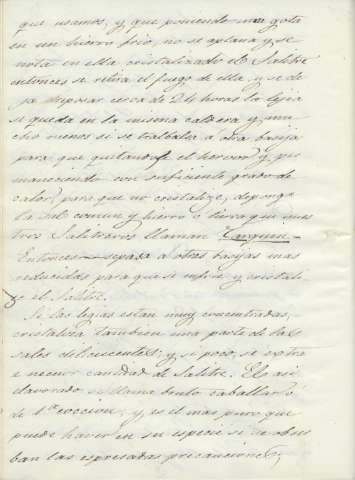 que usamos; y que poniendo una gota
en un hierro frio, no se aplana y se
nota en ella cristalizado el Salitre
entonces se retira el fuego de ella, y se de
ja deposar cerca de 24 horas la legia
si queda en la misma caldera y mu
cho menos si se traslada a otra basija
para que quitandose el hervor y per
maneciendo con suficiente grado de
calor, para que no cristalize, deponga
la Sal comun y hierro o tierra que nues
tros Salitreros llaman
Entonces separa a otras basijas mas
reducidas para que se enfrie y cristali
ze el Salitre.
Si las legias estan muy concentradas,
cristaliza tambien una parte de las
sales delicuecentes; y si poco, se extra
e menor cantidad de Salitre. El asi
elavorado se llama bruto caballar ó
de 1.ª coccion; y es el mas puro que
puede haver en su especie si se obser
ban las espresadas precauciones;